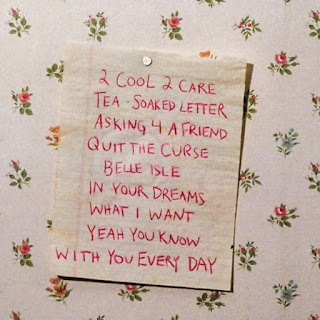 2 COOL 2 CARE
TEA-SOAKED LETTER
ASKING 4 A FRIEND
QUIT THE CURSE
BELLE ISLE
IN YOUR DREAMS
WHAT I WANT
YEAH YOU KNOW
WITH YOU EVERY DAY